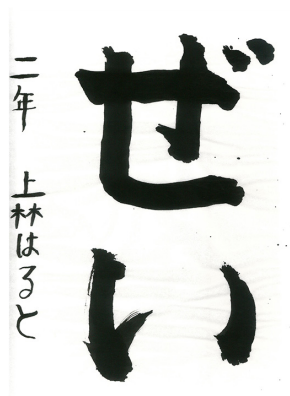 ぜい
二年 上林はると